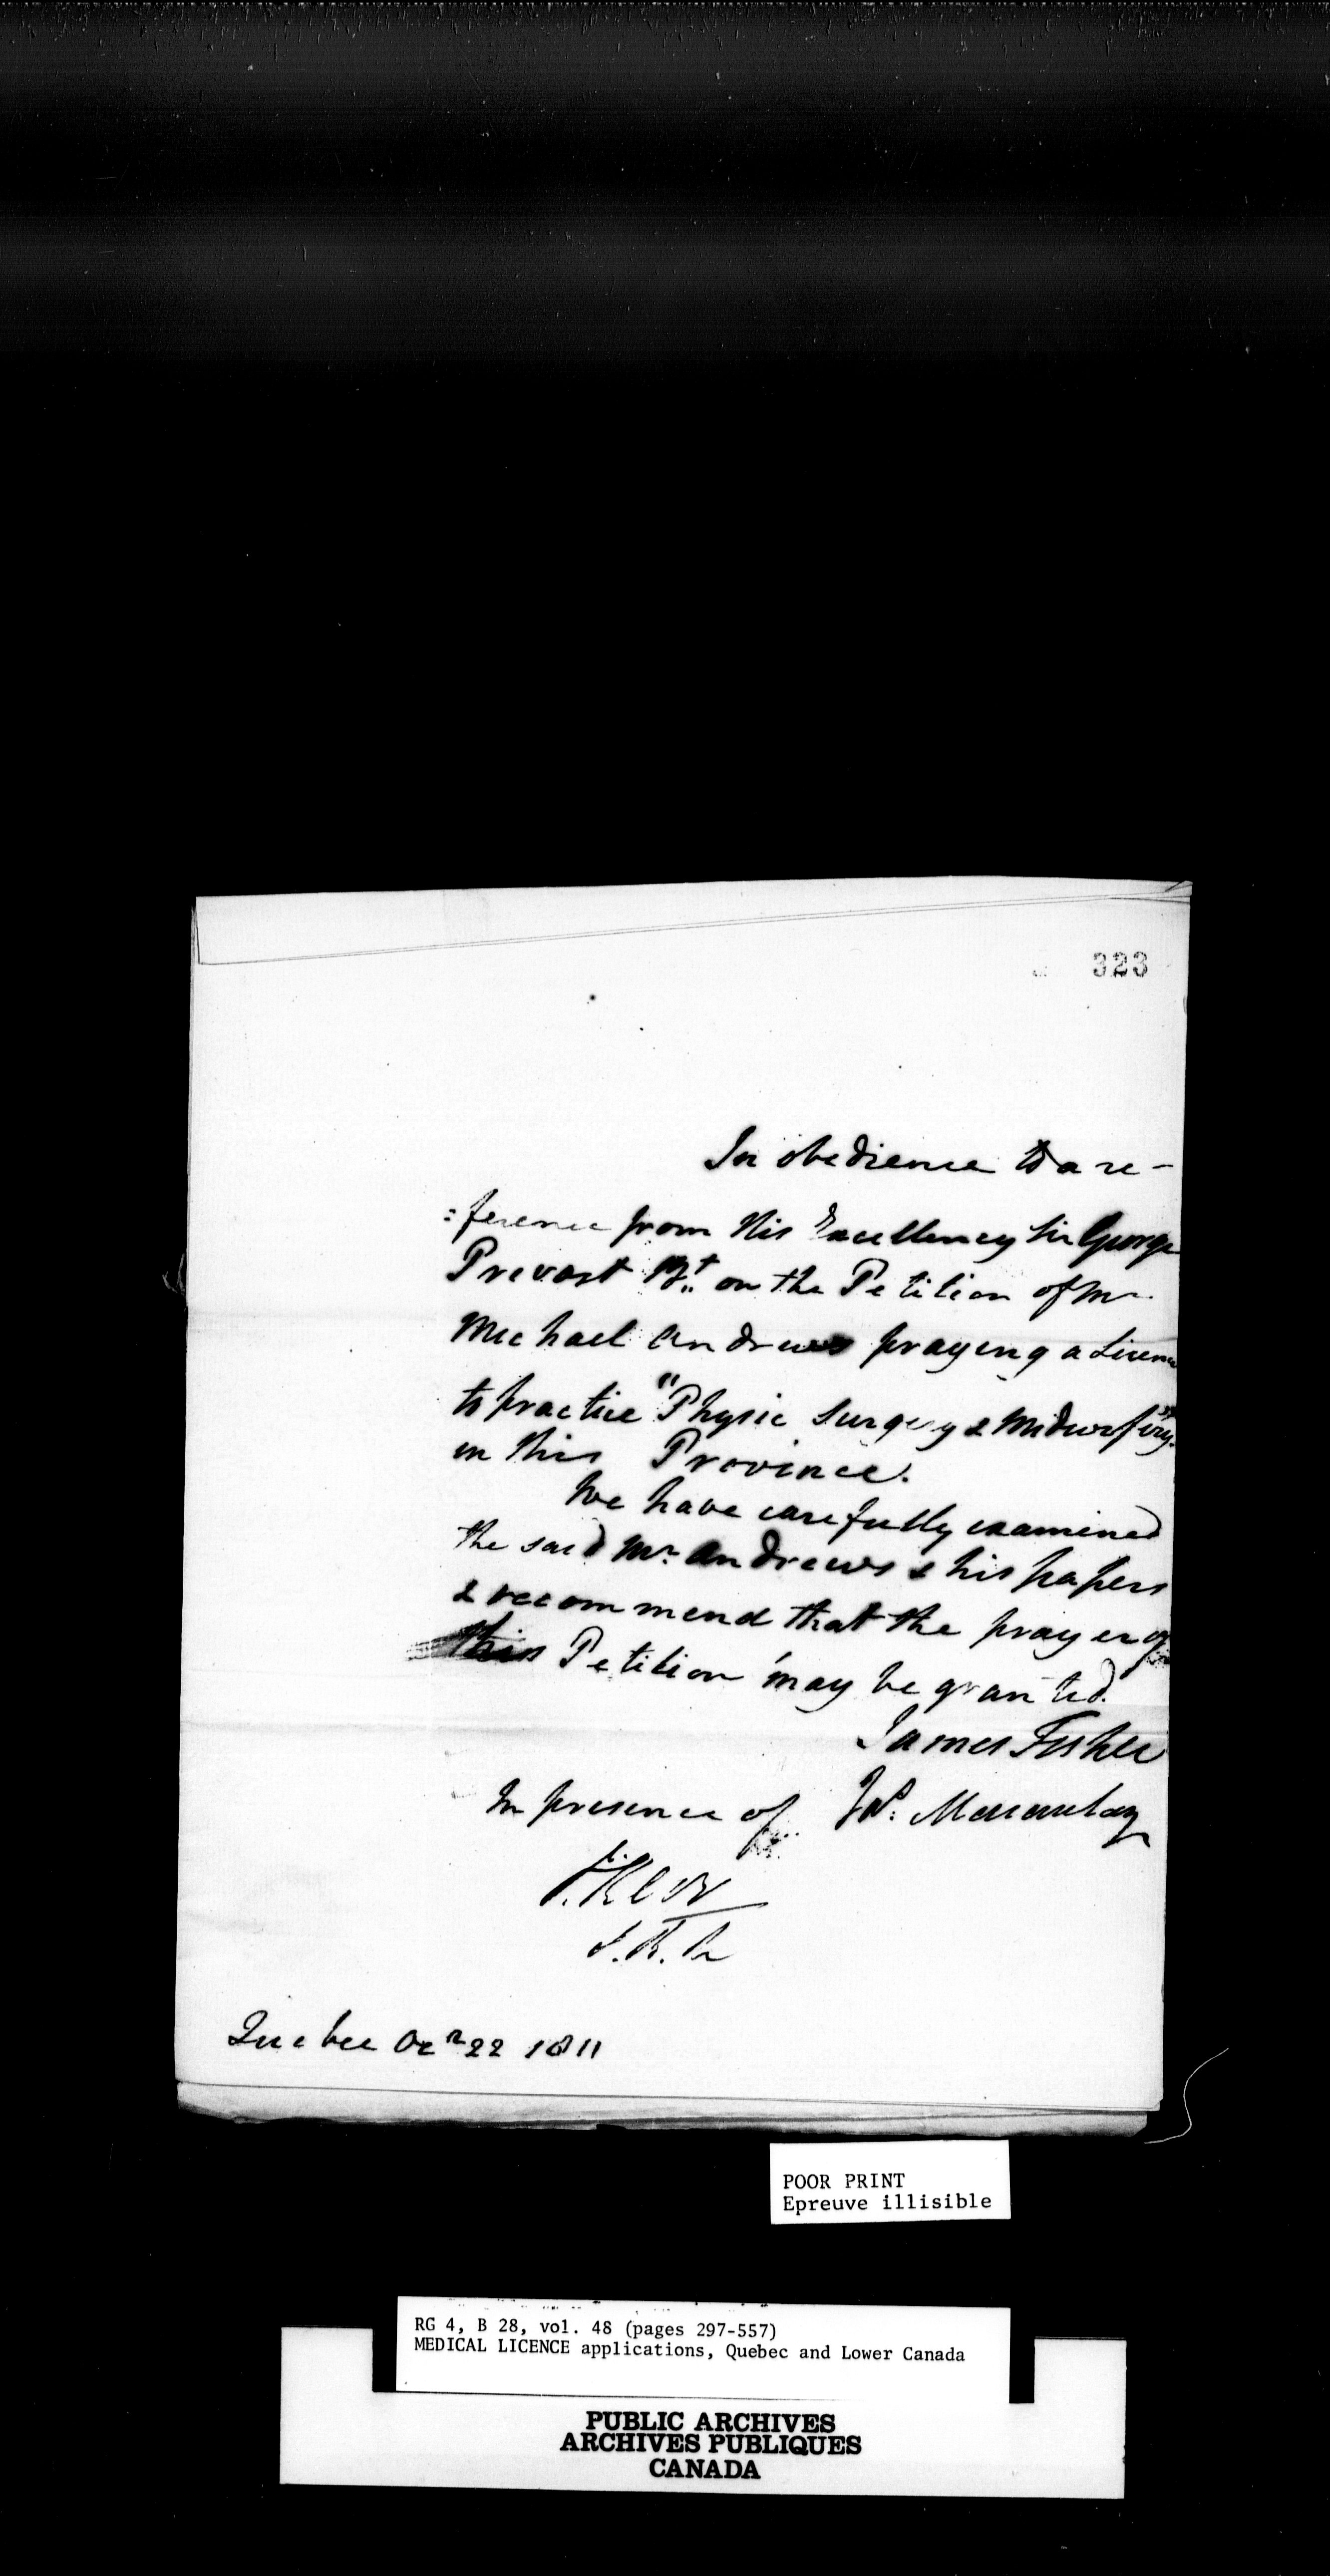 323
In obedience to a re-
:ference from His Excellency Sir George
Prevost Bt. on the Petition of Mr.
Michael Andrews praying a Licence
to practice "Physic Surgery & Midwifery"
in this Province.
We have carefully examined
the said Mr. Andrews & his papers
& recommend that the prayer of
this Petition may be granted.
James Fisher
In presence of
Wm. Macaulay
Quebec Octr 22 1811
POOR PRINT
Epreuve illisible
RG 4, B 28, vol. 48 (pages 297-557)
MEDICAL LICENCE applications, Quebec and Lower Canada
PUBLIC ARCHIVES
ARCHIVES PUBLIQUES
CANADA